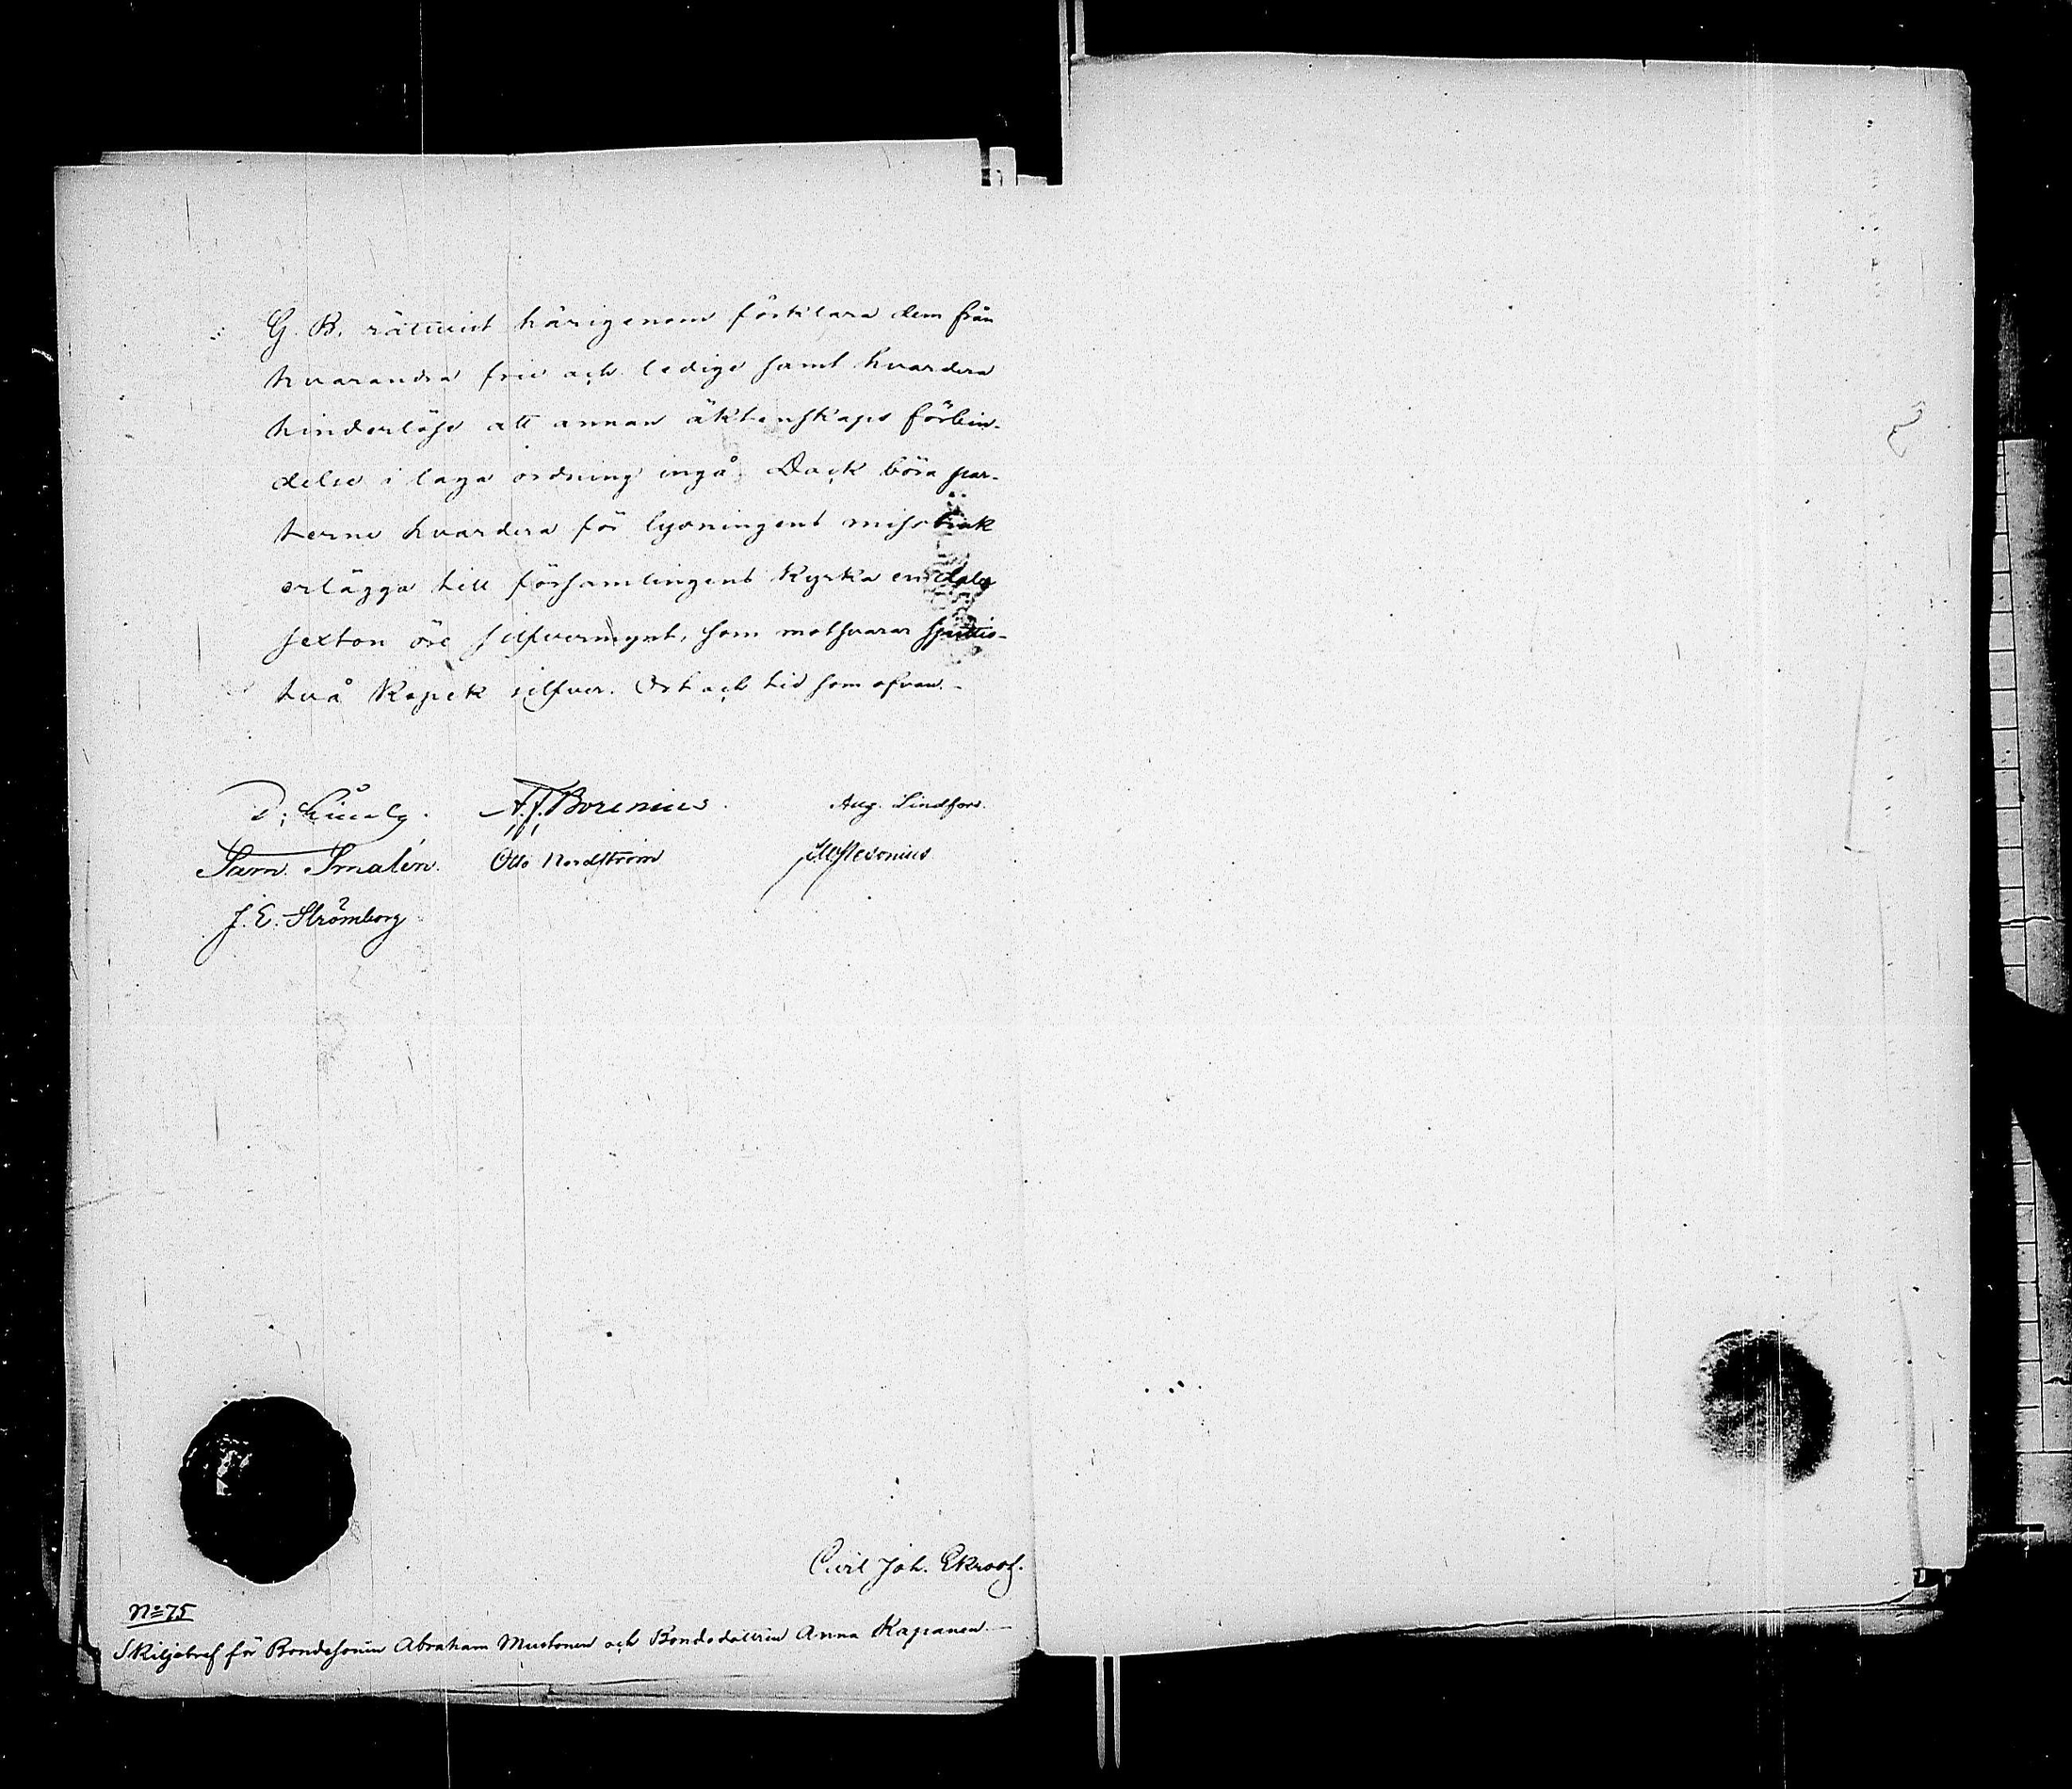 G. B. rättvist härigenom förklara dem från
hvarandra frie och ledige samt hvardera
hinderlöse att annan äktenskaps förbin-
delse i laga ordning ingå. Dock böra par-
terne hvardera för lysningens missbruk
erlägga till församlingens Kyrka en daler
sexton öre silfvermynt, som motsvarar sjuttio-
två Kopek silfver. Ort och tid som ofvan.-
A. F. Borenius. Aug. Lindfors.
Sam. Smalén. Otto Nordström
J. E. Strömborg
Carl Joh. Ekroos.
No 75
Skiljobref för Bondesonen Abraham Mustonen och Bondedottren Anna Kapanen.-